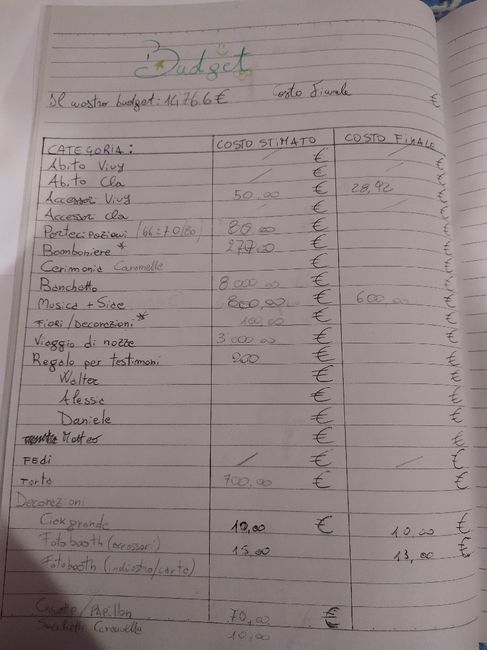 Budget
Il nostro budget: 14.766 € Costo Finale €
CATEGORIA: COSTO STIMATO COSTO FINALE
Abito Vivy / € / €
Abito Cla / € €
Accessori Vivy 50,00 € 28,92 €
Accessori Cla € €
Partecipazioni (66=70/80) 80,00 € €
Bomboniere * 277,00 € €
Cerimonia Caramelle € €
Banchetto 8000,00 € €
Musica + Siae 800,00 € 600,00 €
Fiori/Decorazioni * 100,00 € €
Viaggio di nozze 3000,00 € €
Regalo per testimoni 200 € €
Walter € €
Alessia € €
Daniele € €
Matteo € €
FEDI / € / €
Torta 700,00 € €
Decorazioni
grande 10,00 € 10,00 €
Fotobooth (accessori) 15,00 13,00 €
Fotobooth (indiostro/carta)
/PAPILLON 70,00 €
Sacchetti Caramelle 10,00